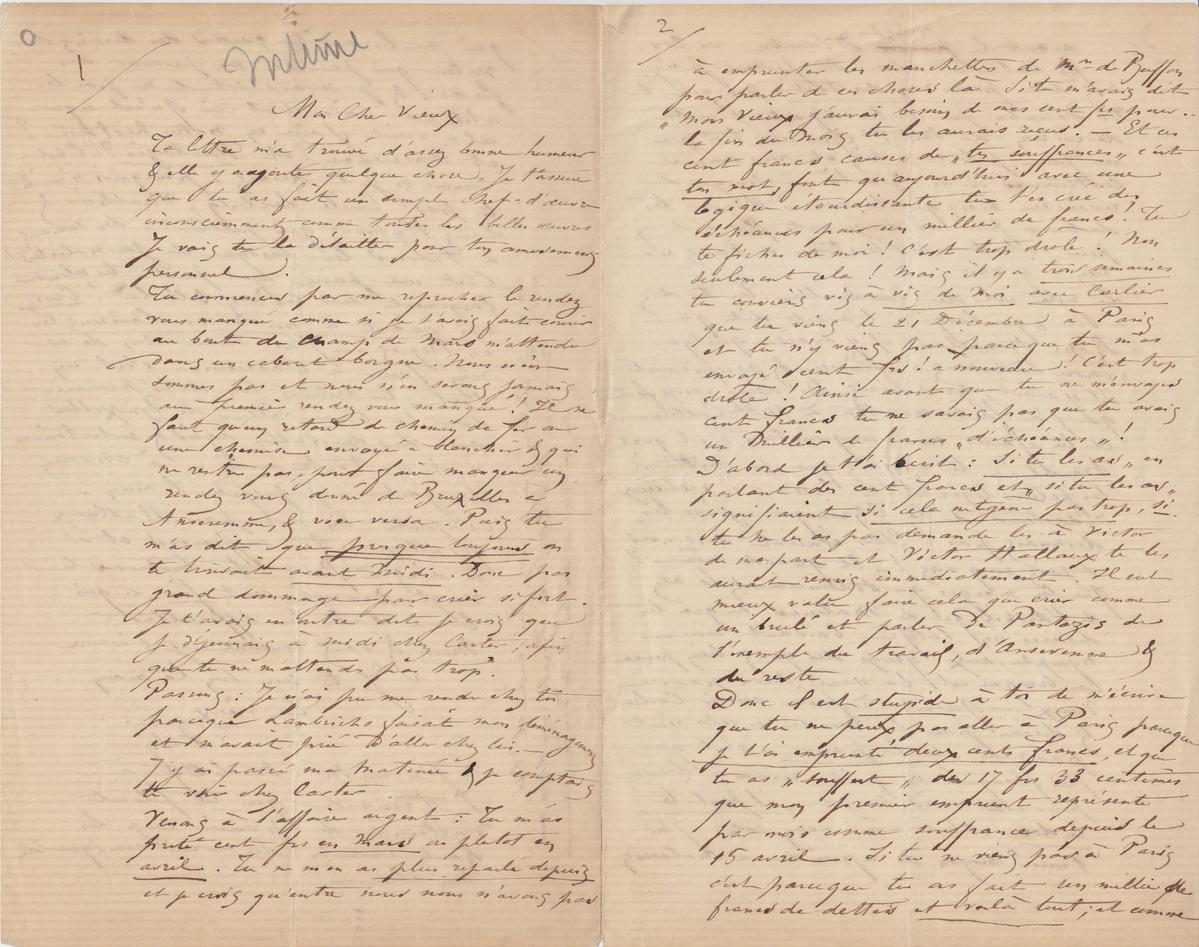 0
1
Intime
Mon Cher Vieux
Ta lettre m'a trouvé d'assez bonne humeur
& elle y a ajouté quelque chose. Je t'assure
que tu as fait un simple chef-d'œuvre
inconsciemment comme toutes les belles œuvres
Je vais te le détailler pour ton amusement
personnel.
Tu commences par me reprocher le rendez
vous manqué comme si je t'avais fait courir
au bout du Champ de Mars m'attendre
dans un cabaret borgne. Nous n'en
sommes pas et nous n'en serons jamais
au premier rendez vous manqué ! Il ne
faut qu'un retard de chemin de fer ou
une chemise envoyée à blanchir & qui
ne rentre pas, pour faire manquer un
rendez vous donné de Bruxelles à
Anseremme, & vice versa. Puis tu
m'as dit que presque toujours on
te trouvait avant midi. Donc pas
grand dommage pour crier si fort.
Je t'avais en outre dit je crois que
je déjeunais à midi chez Carter, afin
que tu ne m'attendes pas trop.
Passons : Je n'ai pu me rendre chez toi
parceque Lambrichs faisait mon déménagement
et m'avait prié d'aller chez lui. —
J'y ai passé ma matinée & je comptais
te voir chez Carter.
Venons à l'affaire argent : Tu m'as
prêté cent frs en Mars ou plutot en
avril. Tu ne m'en as plus reparlé depuis
et je crois qu'entre nous nous n'avons pas
2
à emprunter les manchettes de Mr de Buffon
pour parler de ces choses là. Si tu m'avais dit
"Mon Vieux j'aurai besoin de mes cent frs pour..
la fin du Mois tu les aurais reçus. — Et ces
cent francs causes de „tes souffrances„ c'est
ton mot, font qu'aujourd'hui avec une
logique étourdissante tu t'es créé des
échéances pour un millier de francs ! Tu
te fiches de moi ! C'est trop drôle ! Non
seulement cela ! Mais il y a trois semaines
tu conviens vis à vis de moi avec Carlier
que tu viens le 21 Décembre à Paris
et tu n'y viens pas parceque tu m'as
envoyé cent frs ! à nouveau ! C'est trop
drôle ! Ainsi avant que tu ne m'envoyes
cent francs tu ne savais pas que tu avais
un millier de francs „d'échéances„ !
D'abord je t'ai écrit : Si tu les as „ en
parlant des cent francs et „ si tu les as„
signifiaient si cela ne te gêne pas trop, si
tu ne les as pas demande les à Victor
de ma part et Victor Hallaux te les
aurait remis immédiatement. Il eut
mieux valu faire cela que crier comme
un brulé et parler De Pantazis de
l'exemple du travail, d'Anseremme &
du reste
Donc il est stupide à toi de m'écrire
que tu ne peux pas aller à Paris parceque
je t'ai emprunté deux cents francs, et que
tu as „souffert„ des 17 frs 33 centimes
que mon premier emprunt représente
par mois comme souffrance depuis le
15 avril. Si tu ne viens pas à Paris
c'est parceque tu as fait un millier de
francs de dettes et voilà tout ; et comme